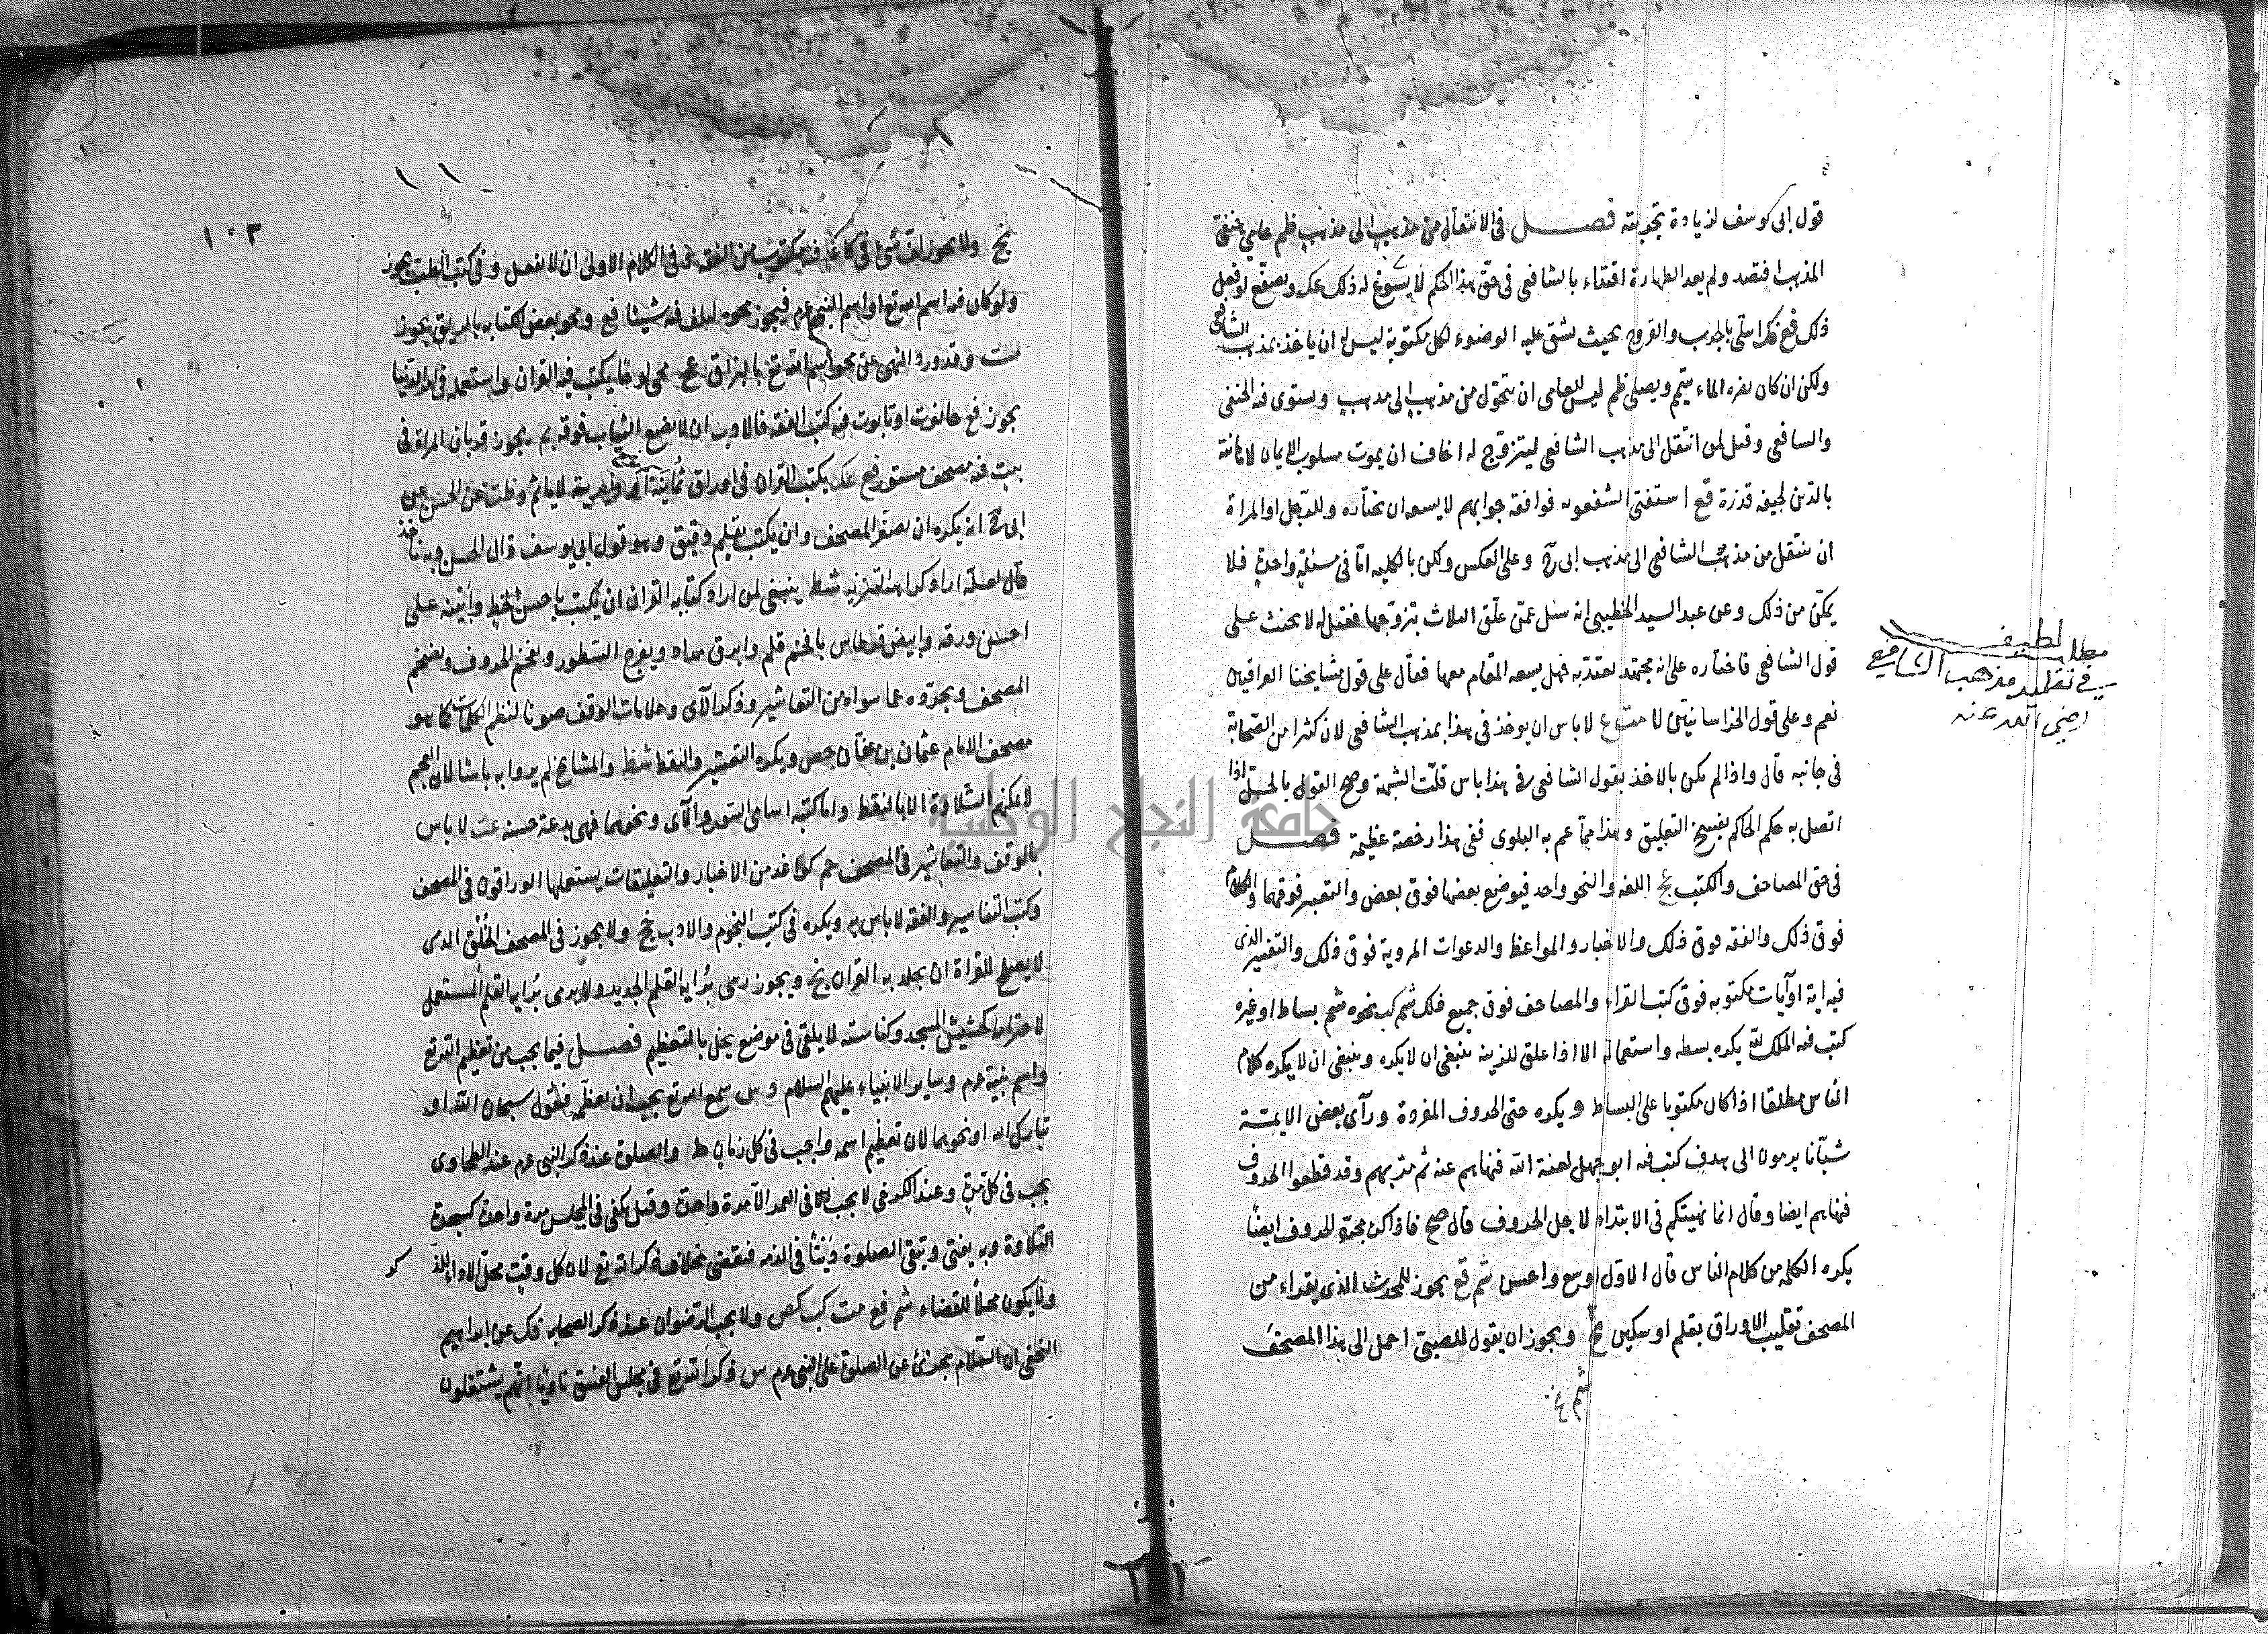 قول ابى يوسف لزيادة تجربته فصل فى الانتقال من مذهب الى مذهب ظم عامي حنفى
المذهب افتصد ولم يعد الطهارة اقتداء بالشافعى فى حق هذا الحكم لا يسوغ له ذلك عك ويصفع لو فعل
ذلك قع فك ابتلى بالجرب والقروح بحيث يشق عليه الوضوء لكل مكتوبة ليس له ان ياخذ بمذهب الشافعى
ولكن ان كان يضره الماء يتيمم ويصلى ظم ليس للعامى ان يتحول من مذهب الى مذهب ويستوى فيه الحنفى
والشافعى وقيل لمن انتقل الى مذهب الشافعى ليتزوج له اخاف ان يموت مسلوب الايمان لاهانته
بالدين لجيفة قذرة قع استفتى الشفعوية فوافقه جوابهم لا يسعه ان يختاره وللرجل او المراة
ان ينتقل من مذهب الشافعى الى مذهب ابى ح وعلى العكس ولكن بالكلية اما فى مسئلة واحدة فلا
يمكن من ذلك وعن عبد السيد الخطيبى انه سئل عمن علق الثلاث بتزوجها فقيل له لا يحنث على
قول الشافعى فاختاره على انه مجتهد يعتد به فهل يسعه المقام معها فقال على قول مشايخنا العراقيين
نعم وعلى قول الخراسانيين لا لا باس ان يوخذ فى هذا بمذهب الشافعى لان كثيرا من الصحابة
فى جانبه قال واذا لم يكن بالاخذ بقول الشافعى فى هذا باس قلت الشبهة وصح القول بالحل اذا
اتصل به حكم الحاكم بفسخ التعليق وهذا مما عم به البلوى ففى هذا رخصة عظيمة فصل
فى حق المصاحف والكتب نج اللغة والنحو واحد فيوضع بعضها فوق بعض والتعبير فوقهما والكلام
فوق ذلك والفقه فوق ذلك والاخبار والمواعظ والدعوات المروية فوق ذلك والتفسير الذى
فيه اية او آيات مكتوبة فوق كتب القراء والمصاحف فوق جميع ذلك شم كب نحوه شم بساط او غيره
كتب فيه الملك لله يكره بسطه واستعماله الا اذا علق للزينة ينبغى ان لا يكره وينبغى ان لا يكره كلام
الناس مطلقا اذا كان مكتوبا على البساط ويكره حتى الحروف المفردة ورآى بعض الايمة
شبانا يرمون الى هدف كتب فيه ابو جهل لعنة الله فنهاهم عنه ثم مر بهم وقد قطعوا الحروف
فنهاهم ايضا وقال انما نهيتكم فى الابتداء لاجل الحروف قال صح فاذا يكره مجرد الحروف ايضا
يكره الكلمة من كلام الناس قال الاول اوسع واحسن شم قع يجوز للمحدث الذى يقراء من
المصحف تقليب الاوراق بقلم او سكين ويجوز ان يقول للصبى احمل الى هذا المصحف
شم نج
مطلب لطيف
فى تقليد مذهب الشافعى
رضى الله عنه
١٠٣
نج ولا يجوز لف شئ فى كاغد فيه مكتوب من الفقه وفى الكلام الاولى ان لا يفعل وفى كتب الطب يجوز
ولو كان فيه اسم الله تع او اسم النبى عم فيجوز محوه ليلف فيه شيئا قع ومحو بعض الكتابة بالريق يجوز
وقد ورد النهى عن محو اسم الله تع بالبزاق محى لوحا يكتب فيه القران واستعمله فى امر الدنيا
يجوز قع حانوت او تابوت فيه كتب الفقه فالادب ان لا يضع الثياب فوقه يجوز قربان المراة فى
بيت فيه مصحف مستور قع عك يكتب القران فى اوراق لا ياثم وظت عن الحسن عن
ابى ح انه يكره ان يصغر المصحف وان يكتب بقلم دقيق وهو قول ابى يوسف قال الحسن وبه ناخذ
قال لعله اراد كراهة التنزيه شط ينبغى لمن اراد كتابة القران ان يكتب باحسن الخط وابينه على
احسن ورقه وابيض قرطاس بافخم قلم وابرق مداد ويفرج السطور ويفخم الحروف ويضخم
المصحف ويجرده عما سواه من التعاشير وذكر الآى وعلامات الوقف صونا لنظم الكلمات كما هو
مصحف الامام عثمان بن عفان ويكره التعشير والنقط شظ والمشايخ لم يروا به باسا لان العجم
لا يمكنهم التلاوة الا بالنقط واما كتبة اسامى السور والآى ونحوهما فهى بدعة حسنة عت لا باس
بالوقف والتعاشير فى المصحف حم كواغد من الاخبار والتعليقات يستعملها الوراقون فى المصحف
وكتب التفاسير والفقه لا باس به ويكره فى كتب النجوم والادب نج ولا يجوز فى المصحف الخلق الذى
لا يصلح للقراة ان يجلد به القران نج ويجوز رمى براية القلم الجديد ولا يرمى براية القلم المستعمل
لاحترامه كحشيش المسجد وكناسته لا يلقى فى موضع يخل بالتعظيم فصل فيما يجب من تعظيم الله تع
واسم نبيه عم وساير الانبياء عليهم السلام سمع اسم الله تع يجب ان يعظمه فيقول سبحان الله او
تبارك الله او نحوهما لان تعظيم اسمه واجب فى كل زمان ط والصلوة عند ذكر النبى عم عند الطحاوى
يجب فى كل مرة وعند الكرخى لا يجب فى العمر الا مرة واحدة وقيل يكفى فى المجلس مرة واحدة كسجدة
التلاوة وبه يفتى وتبقى الصلوة دينا فى الذمه فتقضى بخلاف ذكر الله تع لان كل وقت محل الاداء
ولا يكون محلا للقضاء شم قع مت كب كص ولا يجب الترضوان عند ذكر الصحابة فك عن ابراهيم
النخعى ان السلام يجزئ عن الصلوة على النبى عم س ذكر الله تع فى مجلس الفسق ناويا انهم يشتغلون
جامعة النجاح الوطنية